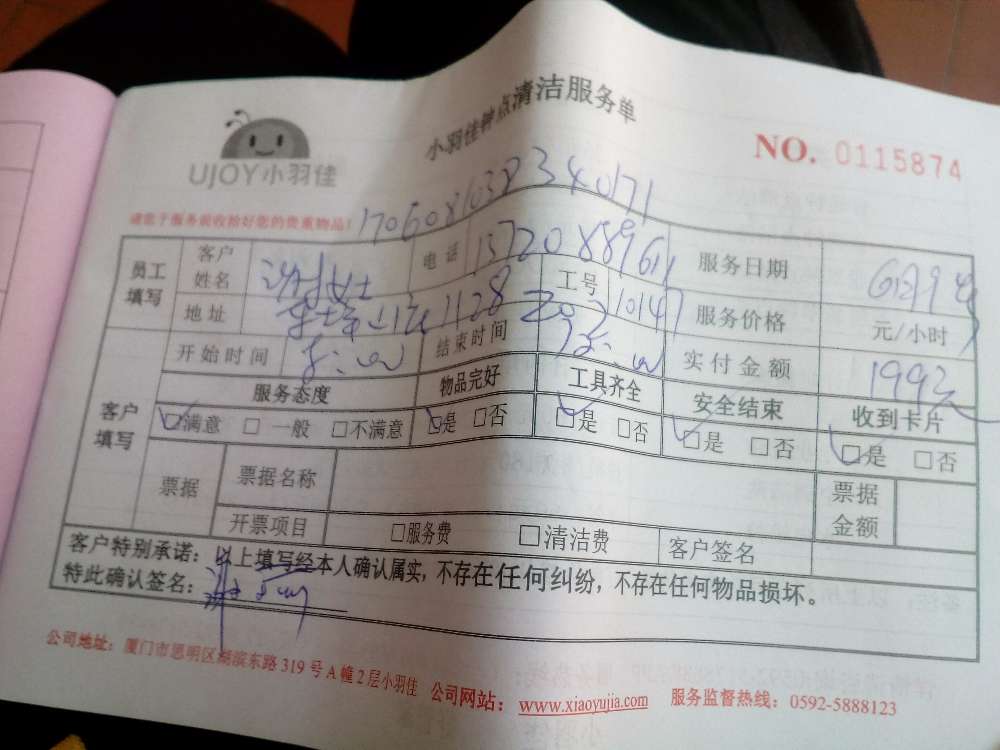 小羽佳钟点清洁服务单
UJOY小羽佳
NO. 0115874
请您于服务前收拾好您的贵重物品!
17060810323340171
员工填写 客户姓名 电话 15720889611 服务日期
地址 1128 工号 服务价格 元/小时
开始时间 结束时间 实付金额 199元
客户填写 服务态度 物品完好 工具齐全 安全结束 收到卡片
☑满意 □一般 □不满意 ☑是 □否 ☑是 □否 ☑是 □否 ☑是 □否
票据 票据名称 票据金额
开票项目 □服务费 □清洁费 客户签名
客户特别承诺：以上填写经本人确认属实，不存在任何纠纷，不存在任何物品损坏。
特此确认签名：
公司地址：厦门市思明区湖滨东路319号A幢2层小羽佳 公司网站：www.xiaoyujia.com 服务监督热线：0592-5888123